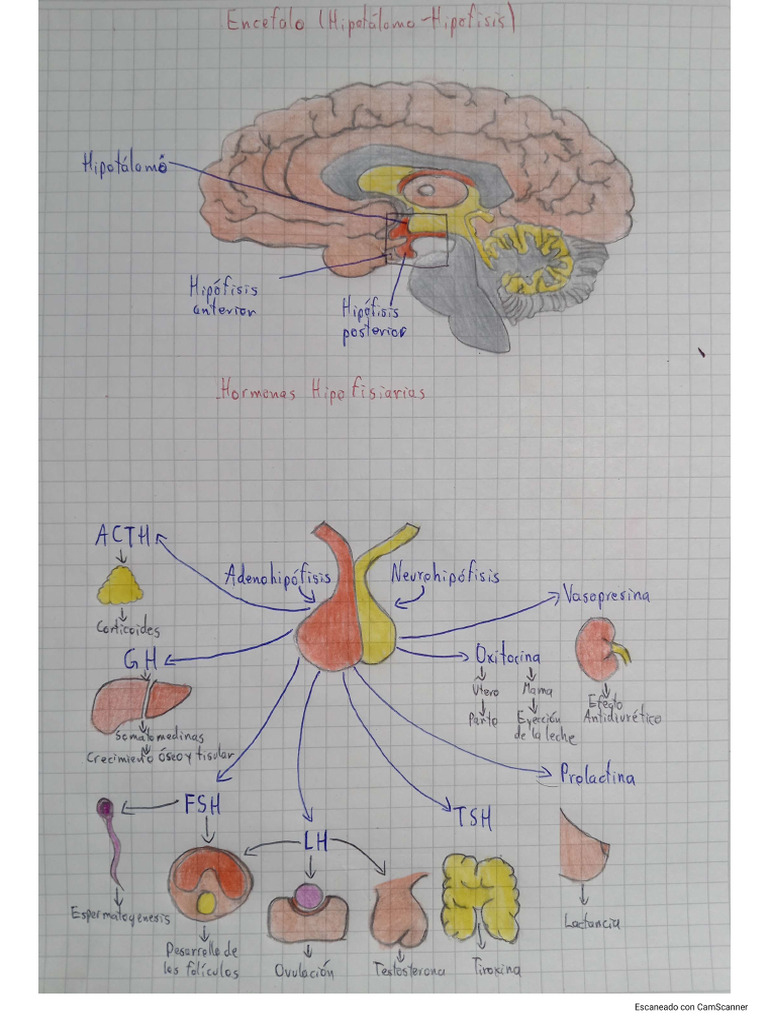 Encefalo (Hipotálamo-Hipofisis)
Hipotálamo
Hipófisis
anterior
Hipófisis
posterior
Hormonas Hipofisiarias
ACTH
Adenohipófisis
Neurohipófisis
Vasopresina
Corticoides
GH
Oxitocina
Utero
Mama
Efecto
Antidiurético
Parto
Eyección
de la leche
Somatomedinas
Crecimiento óseo y tisular
Prolactina
FSH
LH
TSH
Espermatogenesis
Desarrollo de
los folículos
Ovulación
Testosterona
Tiroxina
Lactancia
Escaneado con CamScanner